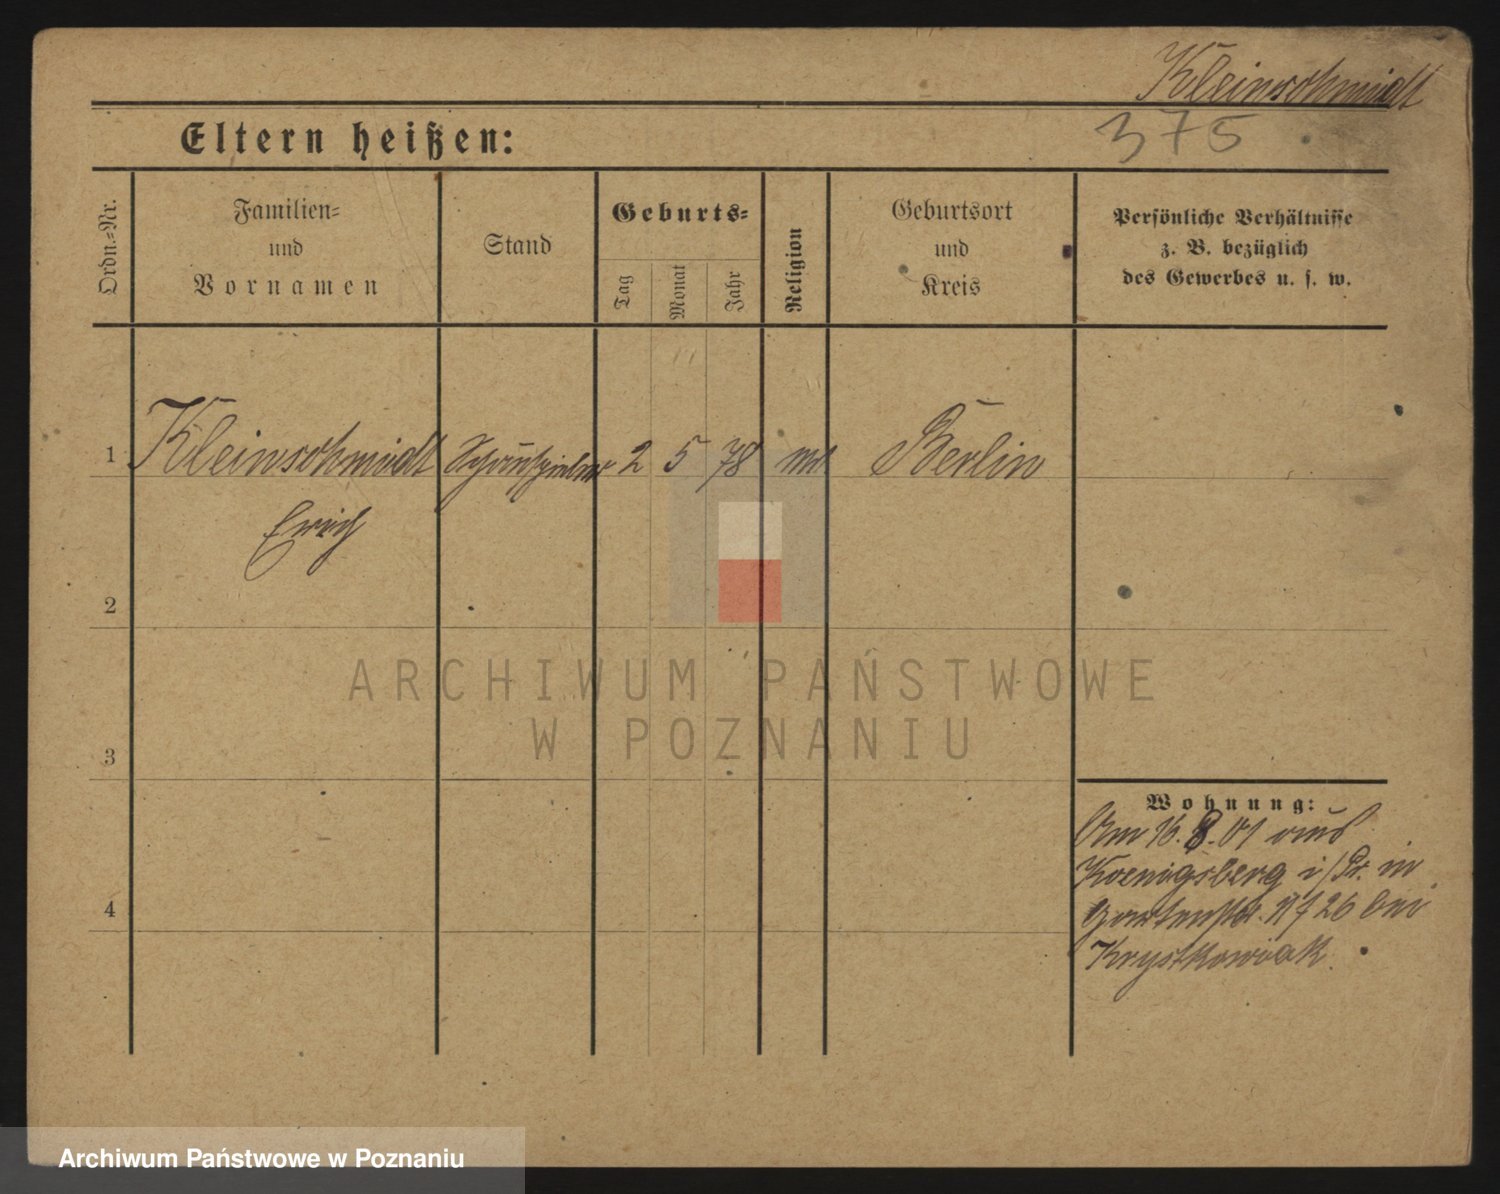 Kleinschmidt
375
Eltern heißen:
Ordn.-Nr.
Familien-
und
Vornamen
Stand
Geburts-
Tag
Monat
Jahr
Religion
Geburtsort
und
Kreis
Persönliche Verhältnisse
z. B. bezüglich
des Gewerbes u. s. w.
1 Kleinschmidt Schauspieler 2 5 78 Berlin
Erich
2
3
4
Wohnung:
Am 16. 8. 01 aus
Koenigsberg i/Pr. in
Gartenstr. 26 bei
Krystkowiak.
ARCHIWUM PAŃSTWOWE
W POZNANIU
Archiwum Państwowe w Poznaniu